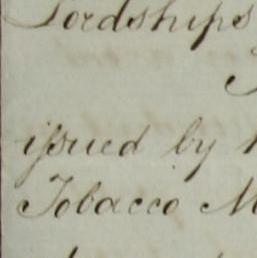 Lordships
issued by
Tobacco M